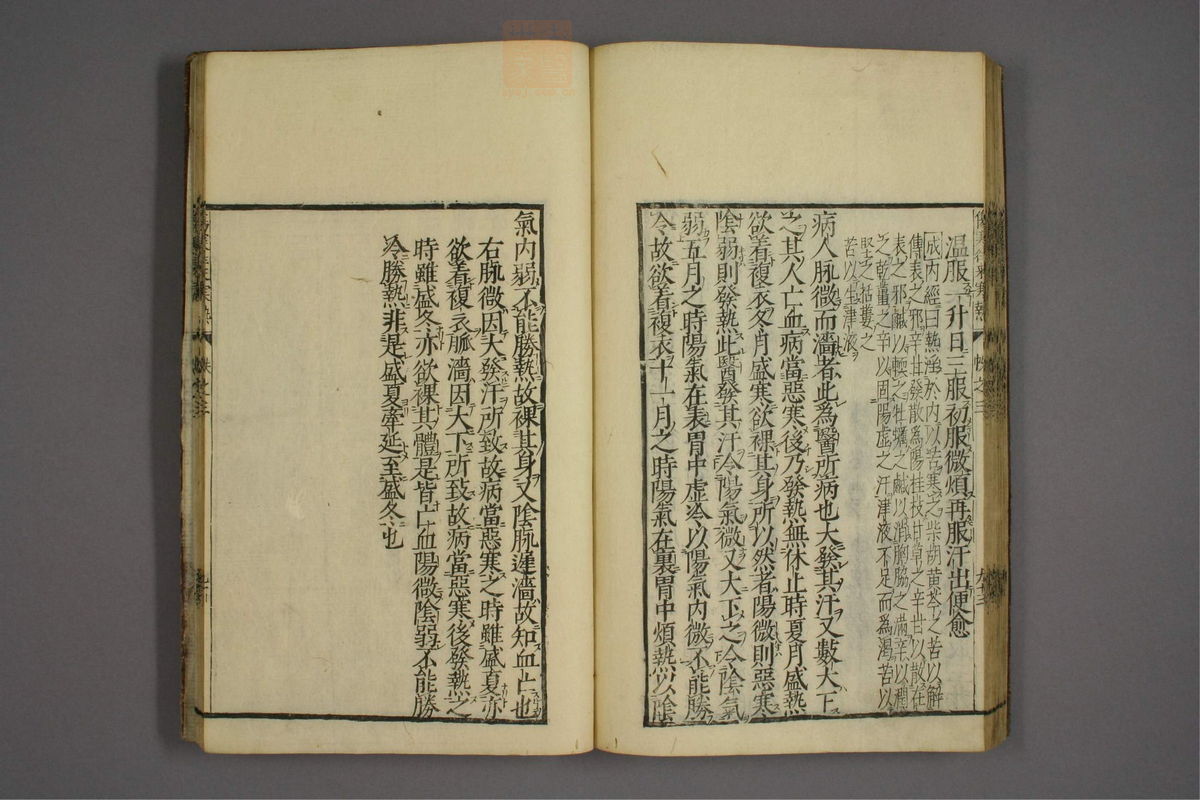 温服一升日三服初服微煩再服汗出便愈
成内經曰熱淫於内以苦寒之柴胡黄芩之苦以解
傳表之邪辛甘發散為陽桂枝甘草之辛甘以散在
表之邪鹹以輭之牡蠣之鹹以消胸脇之滿辛以潤
之乾薑之辛以固陽虚之汗津液不足而為渇苦以
堅之栝蔞之
苦以生津液
病人脉微而濇者此為醫所病也大發其汗又數大下
之其人亡血病當惡寒後乃發熱無休止時夏月盛熱
欲着複衣冬月盛寒欲裸其身所以然者陽微則惡寒
陰弱則發熱此醫發其汗令陽氣微又大下之令陰氣
弱五月之時陽氣在表胃中虚冷以陽氣内微不能勝
冷故欲着複衣十一月之時陽氣在裏胃中煩熱以陰
氣内弱不能勝熱故裸其身又陰脉遲濇故知血亡也
右脉微因大發汗所致故病當惡寒之時雖盛夏亦
欲着複衣脈濇因大下所致故病當惡寒後發熱之
時雖盛冬亦欲裸其體是皆亡血陽微陰弱不能勝
冷勝熱非是盛夏牽延至盛冬也